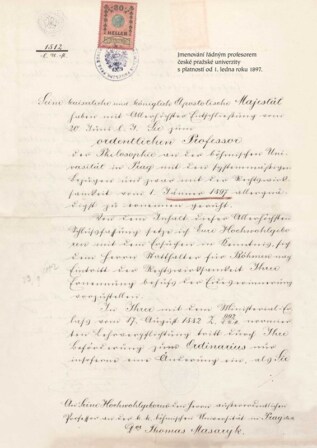 1512
HELLER
Jmenování řádným profesorem
české pražské university
s platností od 1. ledna roku 1897.
Seine kaiserliche und königliche Apostolische Majestät
haben mit Allerhöchster Entschließung vom
20 Juni l. J. Sie zum
ordentlichen Professor
der Philosophie an der böhmischen Uni-
versität in Prag mit den systemmäßigen
Bezügen und zwar mit der Rechtswirk-
samkeit vom 1. Jänner 1897 allergnä-
digst zu ernennen geruht.
Von dem Inhalt dieser Allerhöchsten
Entschließung setze ich Eure Hochwohlgebo-
ren mit dem Ersuchen in Kenntnis, sich
dem Herrn Statthalter für Böhmen nach
Eintritt der Rechtswirksamkeit Ihrer
Ernennung behufs der Eidesgewinnung
vorzustellen.
In Ihrer mit dem Ministerial-Er-
laß vom 17. August 1882 Z. normir-
ten Lehrverpflichtung tritt durch Ihre
Beförderung zum Ordinarius nur
insoferne eine Änderung ein, als Sie
An Seine Hochwohlgeboren den Herrn außerordentlichen
Professor an der k. k. böhmischen Universität in Prag
Dr Thomas Masaryk